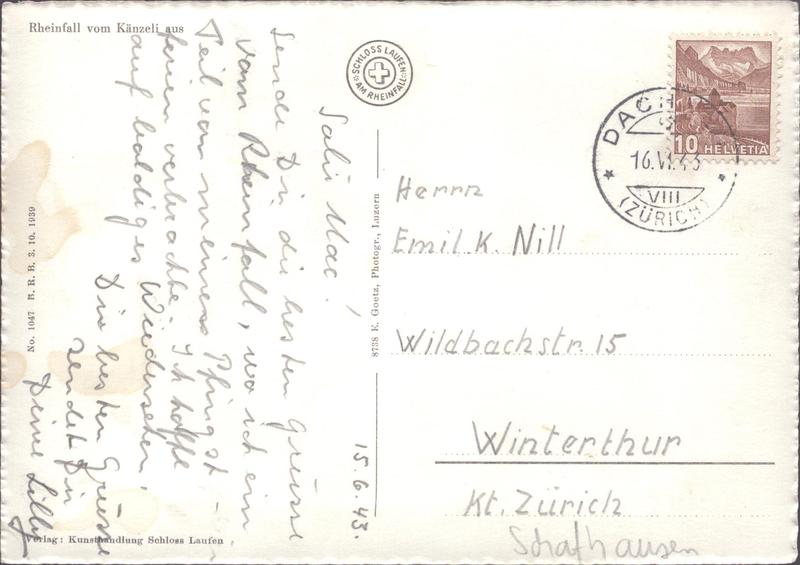 Rheinfall vom Känzeli aus
SCHLOSS LAUFEN
AM RHEINFALL
HELVETIA
10
DACH
16.VI.43
VIII
(ZÜRICH)
15.6.43.
Salü Mac!
Sende Dir die besten Grüsse
vom Rheinfall, wo ich ein
Teil von meinem Pfingst-
ferien verbrachte. Ich hoffe
auf baldiges Wiedersehen.
Die besten Grüsse
sendet Dir
Deine Lilly
Herrn
Emil K. Nill
Wildbachstr. 15
Winterthur
Kt. Zürich
Schafhausen
8738 E. Goetz, Photogr., Luzern
No. 1047 B. R. B. 3. 10. 1939
Verlag: Kunsthandlung Schloss Laufen